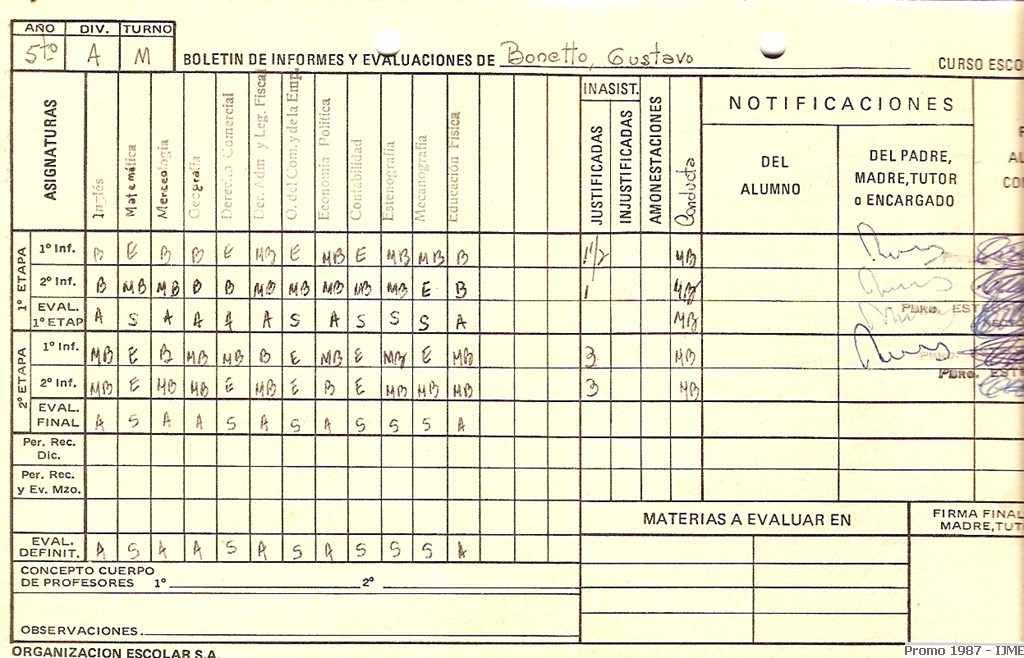 AÑO DIV. TURNO
5to A M
BOLETIN DE INFORMES Y EVALUACIONES DE Bonetto, Gustavo CURSO ESCO
ASIGNATURAS
Inglés
Matemática
Merceología
Geografía
Derecho Comercial
Der. Adm y Leg. Fiscal
O. del Com. y de la Emp.
Economía Política
Contabilidad
Estenografía
Mecanografía
Educación Física
INASIST.
JUSTIFICADAS
INJUSTIFICADAS
AMONESTACIONES
Conducta
NOTIFICACIONES
DEL
ALUMNO
DEL PADRE,
MADRE, TUTOR
o ENCARGADO
1º ETAPA
1º Inf. B E B B E MB E MB E MB MB B 1 1/2 MB
2º Inf. B MB MB B B MB MB MB MB MB E B 1 MB
EVAL.
1º ETAP A S A A A A S A S S S A MB
PBRO. ESTE
2º ETAPA
1º Inf. MB E B MB MB B E MB E MB E MB 3 MB
PBRO. ESTE
2º Inf. MB E MB MB E MB E B E MB MB MB 3 MB
EVAL.
FINAL A S A A S A S A S S S A
Per. Rec.
Dic.
Per. Rec.
y Ev. Mzo.
MATERIAS A EVALUAR EN
FIRMA FINAL
MADRE, TUT
EVAL.
DEFINIT. A S A A S A S A S S S A
CONCEPTO CUERPO
DE PROFESORES 1º 2º
OBSERVACIONES.
ORGANIZACION ESCOLAR S.A.
Promo 1987 - IJME